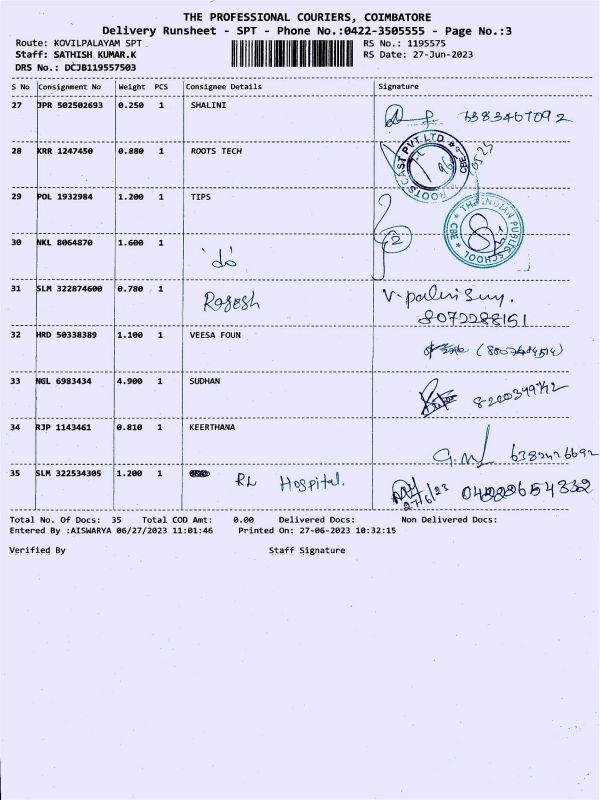 THE PROFESSIONAL COURIERS, COIMBATORE
Delivery Runsheet - SPT - Phone No.:0422-3505555 - Page No.:3
Route: KOVILPALAYAM SPT RS No.: 1195575
Staff: SATHISH KUMAR.K RS Date: 27-Jun-2023
DRS No.: DCJB119557503
S No Consignment No Weight PCS Consignee Details Signature
27 JPR 502502693 0.250 1 SHALINI
28 KRR 1247450 0.880 1 ROOTS TECH
ROOTS CAST PVT LTD CBE
29 POL 1932984 1.200 1 TIPS
THE INDIAN PUBLIC SCHOOL CBE
30 NKL 8064870 1.600 1 do 2
31 SLM 322874600 0.780 1 Rogesh
8072288151
32 HRD 50338389 1.100 1 VEESA FOUN
33 NGL 6983434 4.900 1 SUDHAN
34 RJP 1143461 0.810 1 KEERTHANA
35 SLM 322534305 1.200 1 RL Hospital.
27/6/23
Total No. Of Docs: 35 Total COD Amt: 0.00 Delivered Docs: Non Delivered Docs:
Entered By :AISWARYA 06/27/2023 11:01:46 Printed On: 27-06-2023 10:32:15
Verified By Staff Signature